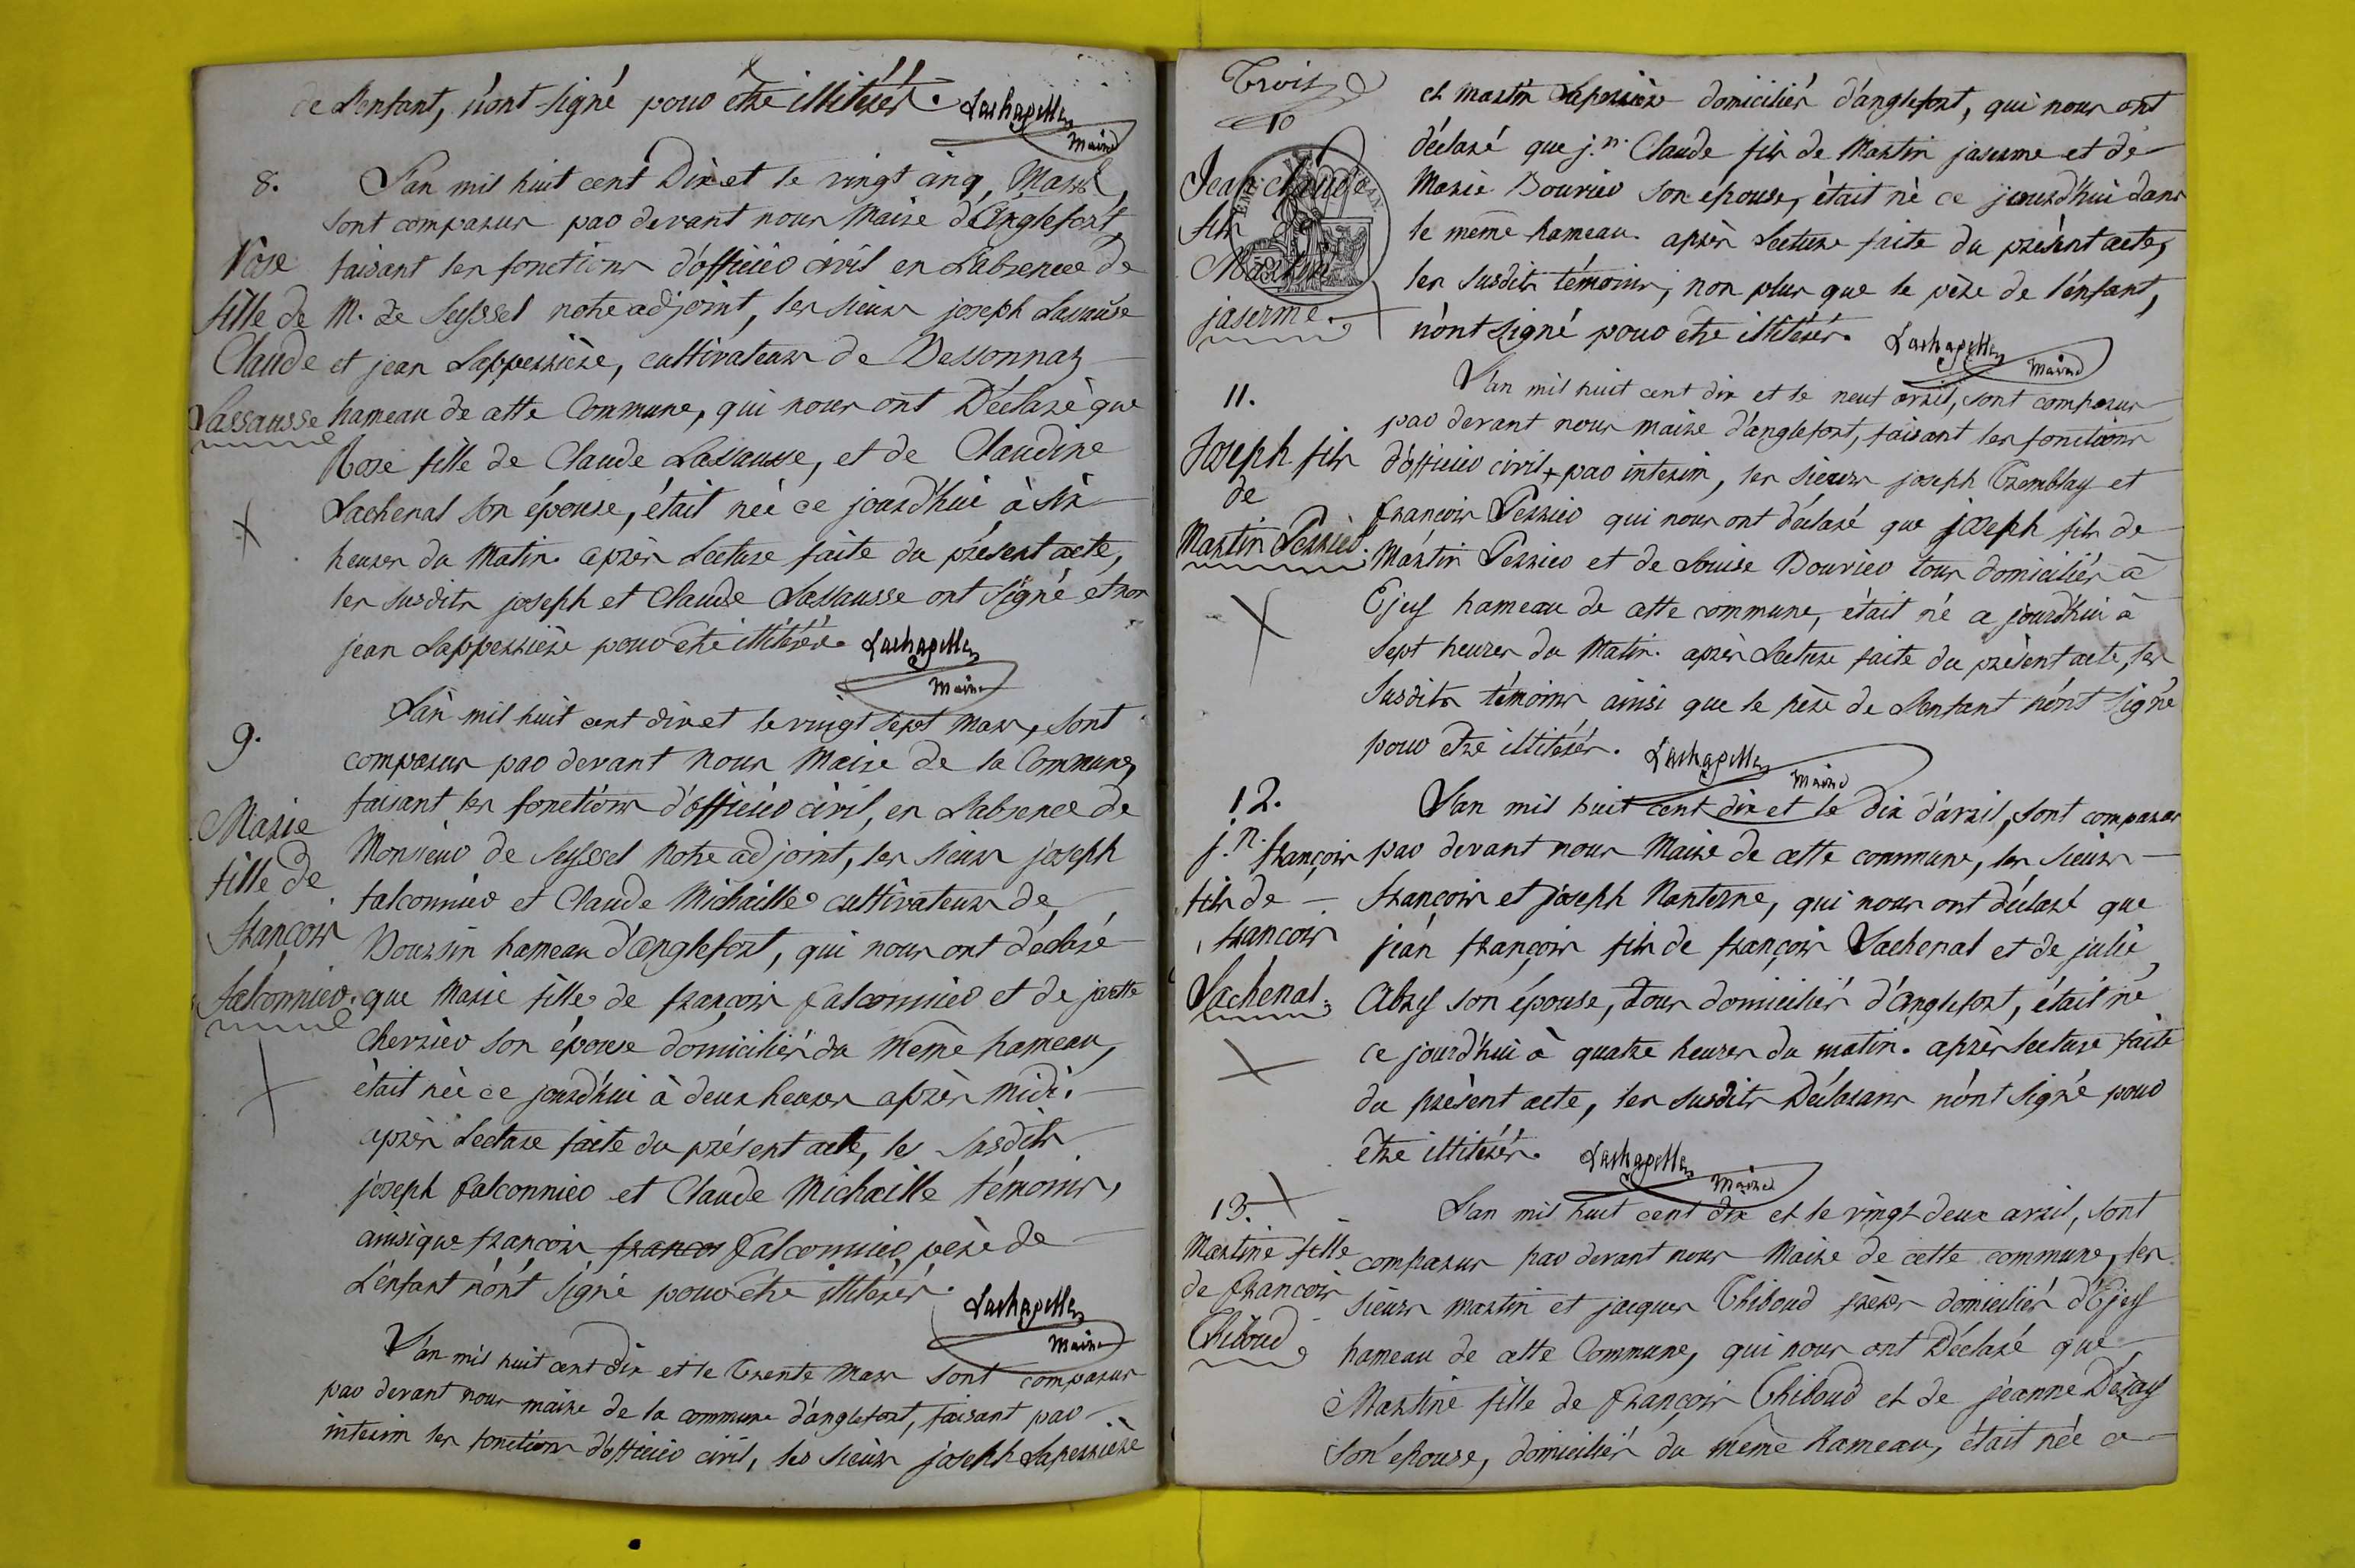 de L'enfant, n'ont signé pour être illitérés. Lachapelle
Maire
8.
L'an mil huit cent Dix et le vingt cinq, Mars,
sont comparus par devant nous Maire d'Anglefort,
Rose
faisant les fonctions d'officier civil en L'absence de
fille de
M. De Seyssel notre adjoint, les sieurs joseph Lassausse
Claude
et jean Lapperrière, cultivateurs de Dessonnaz
Lassausse
hameau de cette Commune, qui nous ont Déclaré que
Rose fille de Claude Lassausse, et de Claudine
Lachenal son épouse, était née ce jourd'hui à six
heures du Matin. après Lecture faite du présent acte,
les susdits joseph et Claude Lassausse ont signé et non
jean Lapperrière pour être illitéré. Lachapelle
Maire
9.
L'an mil huit cent dix et le vingt sept mars, sont
comparus par devant nous Maire de la Commune,
faisant les fonctions d'officier civil, en L'absence de
Marie
Monsieur de Seyssel notre adjoint, les sieurs joseph
fille de
falconnier et Claude Michaille cultivateurs de
françois
Doursin hameau d'anglefort, qui nous ont déclaré
falconnier.
que Marie fille de françois falconnier et de
Chervier son épouse domiciliés du même hameau,
était née ce jourd'hui à deux heures après midi.
après Lecture faite du présent acte, les susdits
joseph falconnier et Claude Michaille témoins,
ainsi que françois françois falconnier, père de
L'enfant n'ont signé pour être illitérés.
Lachapelle
Maire
L'an mil huit cent dix et le trente Mars sont comparus
par devant nous maire de la commune d'anglefort, faisant par
interim les fonctions d'officier civil, les sieurs joseph Laperrière
Trois
10
et martin Laperrière domiciliés d'anglefort, qui nous ont
déclaré que j.n Claude fils de Martin jaserme et de
Jean Claude
Marie Bouvier son épouse, était né ce jourd'hui dans
fils de
le même hameau. après Lecture faite du présent acte,
Martin
les susdits témoins, non plus que le père de l'enfant,
jaserme.
n'ont signé pour être illitérés. Lachapelle
Maire
11.
L'an mil huit cent dix et le neuf avril, sont comparus
par devant nous maire d'anglefort, faisant les fonctions
Joseph fils
d'officier civil par interim, les sieurs joseph Tremblay et
de
françois Perrier qui nous ont déclaré que joseph fils de
Martin Perrier.
Martin Perrier et de Louise Bouvier tous domiciliés à
Ejey hameau de cette commune, était né ce jourd'hui à
sept heures du Matin. après Lecture faite du présent acte, les
susdits témoins ainsi que le père de L'enfant n'ont signé
pour être illitérés. Lachapelle
Maire
12.
L'an mil huit cent dix et le dix d'avril, sont comparus
j.n françois
par devant nous Maire de cette commune, les sieurs
fils de
françois et joseph Nanterne, qui nous ont déclaré que
françois
jean françois fils de françois Lachenal et de julie
Lachenal.
Abry son épouse, tous domiciliés d'Anglefort, était né
ce jourd'hui à quatre heures du matin. après lecture faite
du présent acte, les susdits Déclarans n'ont signé pour
être illitérés. Lachapelle
Maire
13.
L'an mil huit cent dix et le vingt deux avril, sont
Martine fille
comparus par devant nous Maire de cette commune, les
de françois
sieurs martin et jacques Thiboud frères domiciliés d'Ejey
Thiboud
hameau de cette Commune, qui nous ont Déclaré que
Martine fille de françois Thiboud et de jeanne Déjay
son épouse, domiciliés du même hameau, était née ce